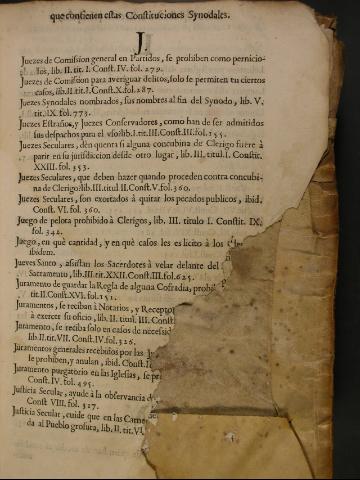 que contienen estas Constituciones Synodales.
J.
Juezes de Comission general en Partidos, se prohiben como pernicio-
sos, lib. II. tit. I. Const. IV. fol. 279.
Juezes de Comission para averiguar delitos, solo se permiten en ciertos
casos, lib. II. tit. I. Const. X. fol. 287.
Juezes Synodales nombrados, sus nombres al fin del Synodo, lib. V.
tit. IX. fol. 773.
Juezes Estraños, y Juezes Conservadores, como han de ser admitidos
sus despachos para el vso: lib. I. tit. III. Const. III. fol. 255.
Juezes Seculares, dèn quenta si alguna concubina de Clerigo fuere à
parir en su jurisdiccion desde otro lugar, lib. III. titul. I. Constit.
XXIII. fol. 353.
Juezes Seculares, que deben hazer quando proceden contra concubi-
na de Clerigo: lib. III. titul. II. Const. V. fol. 360.
Juezes Seculares, son exortados à quitar los pecados publicos, ibid.
Const. VI. fol. 360.
Juego de pelota prohibido à Clerigos, lib. III. titulo I. Constit. IX.
fol. 342.
Juego, en què cantidad, y en què casos les es licito à los
ibidem.
Jueves Santo, assistan los Sacerdotes à velar delante del
Sacramento, lib. III. tit. XXII. Const. III. fol. 625.
Juramento de guardar la Regla de alguna Cofradia,
tit. II. Const. XVI. fol. 151.
Juramentos, se reciban à Notarios, y
à exercer su oficio, lib. II. titul. III.
Juramento, se reciba solo en casos de
lib. II. tit. VII. Const. IV. fol. 326.
Juramentos generales recibidos por las
se prohiben, y anulan, ibid.
Juramento purgatorio en las Iglesias, se
Const. IV. fol. 495.
Justicia Secular, ayude à la observancia
Const. VIII. fol. 327.
Justicia Secular, cuide que en las
da al Pueblo grosura, lib. II. tit. VI.